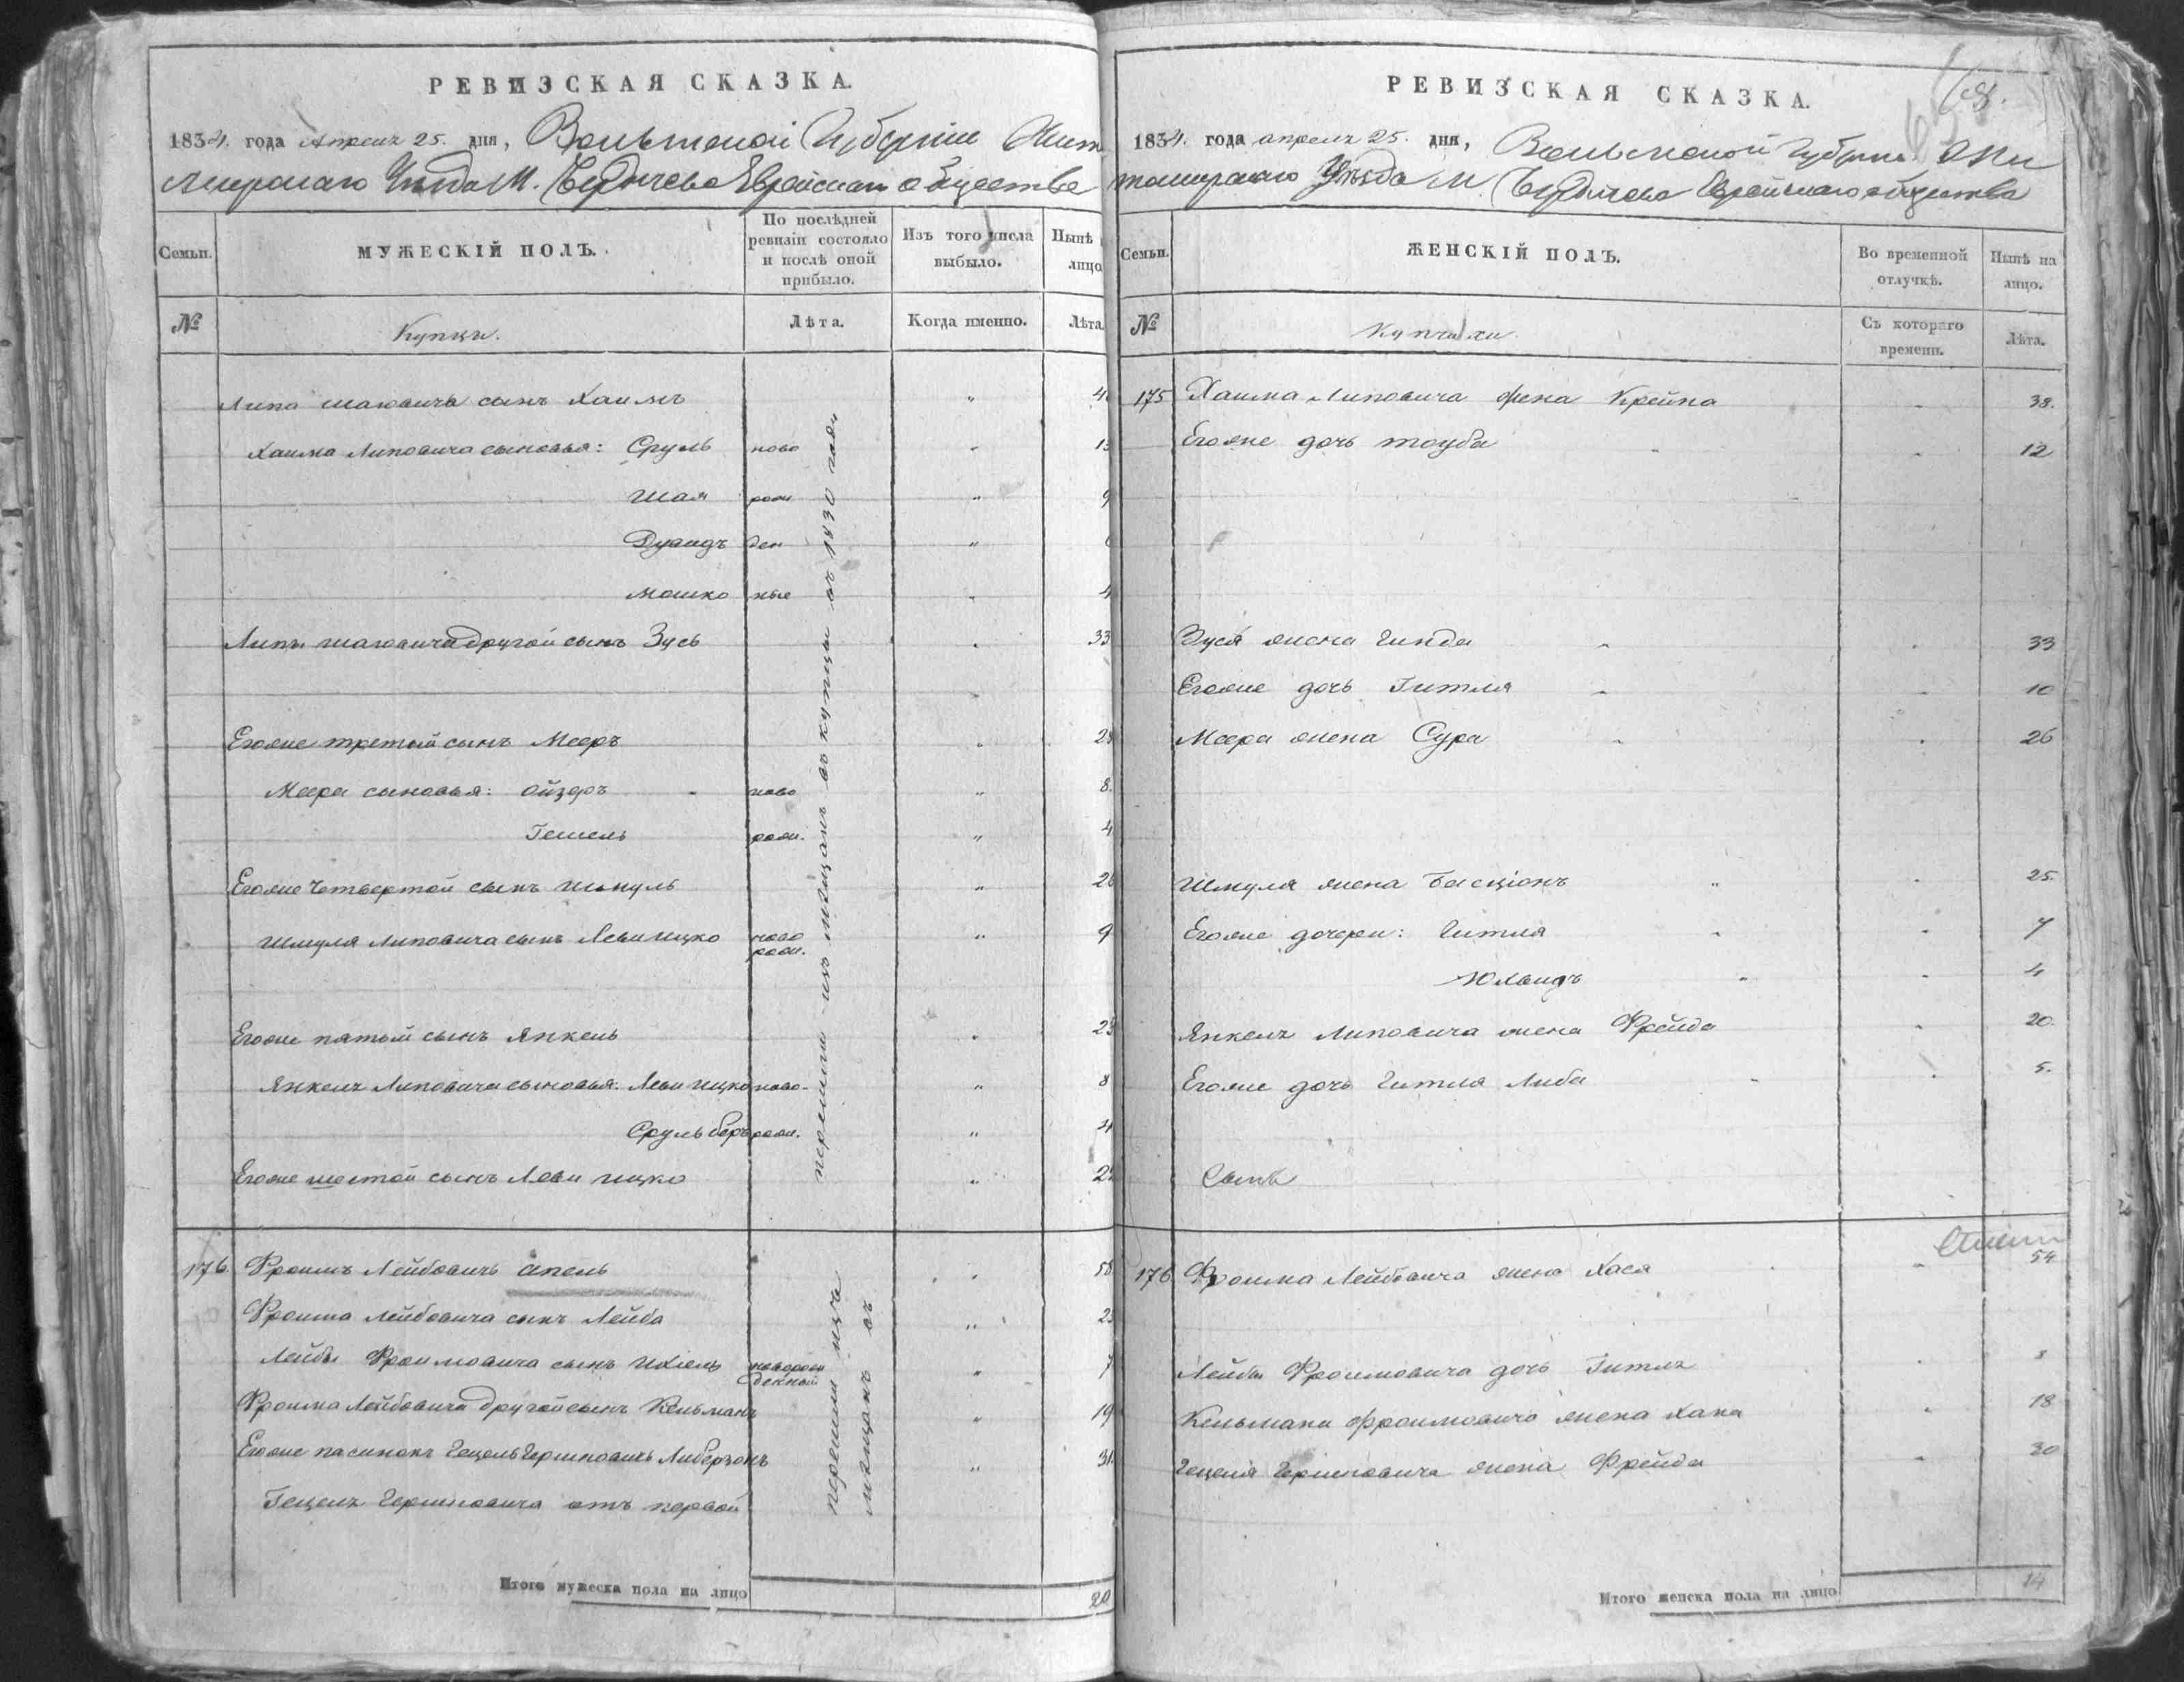 РЕВИЗСКАЯ СКАЗКА.
1834. года Апреля 25. дня, Волынской Губернии Жит
мирскаго Уезда М. Бердичева Еврейскаго общества
Семьи.
МУЖЕСКІЙ ПОЛЪ.
По послѣдней ревизіи состояло и послѣ оной прибыло.
Изъ того числа выбыло.
Нынѣ лицо
№
Купцы.
Лѣта.
Когда именно.
Лѣта.
Липа Шаювича сынъ Хаимъ " 4
Хаима Липовича сыновья: Сруль ново " 13
Шая рож " 9
Дувидъ ден "
Мошко ные " 4
Липы Шаювича другой сынъ Зусь " 33
Егоже третый сынъ Мееръ " 28
Меера сыновья: Ойзеръ ново " 8.
Гешель рож. " 4
Егоже Четвертой сынъ Шмуль " 26
Шмуля Липовича сынъ Леви Ицко ново рож. " 9
Егоже пятый сынъ Янкель " 23
Янкеля Липовича сыновья: Леви Ицко ново- " 8
Сруль беръ рож. " 4
Егоже шестой сынъ Леви Ицко " 2
перешли изъ мѣщанъ въ купцы въ 1830 году
176 Фроимъ Лейбовичъ Апель " 58
Фроима Лейбовича сынъ Лейба " 23
Лейбы Фроимовича сынъ Ихіель новорож денный " 7
Фроима Лейбовича другой сынъ Кельманъ " 19
Егоже пасинокъ Гецель Гершковичъ Либерзонъ " 31.
Гецеля Гершковича отъ первой
перешли изъ
мѣщанъ въ
Итого мужеска пола на лицо 20
РЕВИЗСКАЯ СКАЗКА.
1834. года апреля 25. дня, Волынской Губерни Жи
томирскаго Уѣзда М. Бердичева Еврейскаго общества
Семьи.
ЖЕНСКІЙ ПОЛЪ.
Во временной отлучкѣ.
Нынѣ на лицо.
№
Купчихи
Съ котораго времени.
Лѣта.
175 Хаима Липовича жена Крейна 38.
Егоже дочь Тауба 12
Зуся жена Гинда 33
Егоже дочь Гитля 10
Меера жена Сура 26
Шмуля жена Басціонъ 25.
Егоже дочери: Гитля 7
4
Янкеля Липовича жена Фрейда 20.
Егоже дочь Гитля Либа 5.
176 Фроима Лейбовича жена Хася 54
Лейбы Фроимовича дочь Гитля 8
Кельмана Фроимовича жена Хана 18
Гецеля Гершковича жена Фрейда 30
Итого женска пола на лицо 14